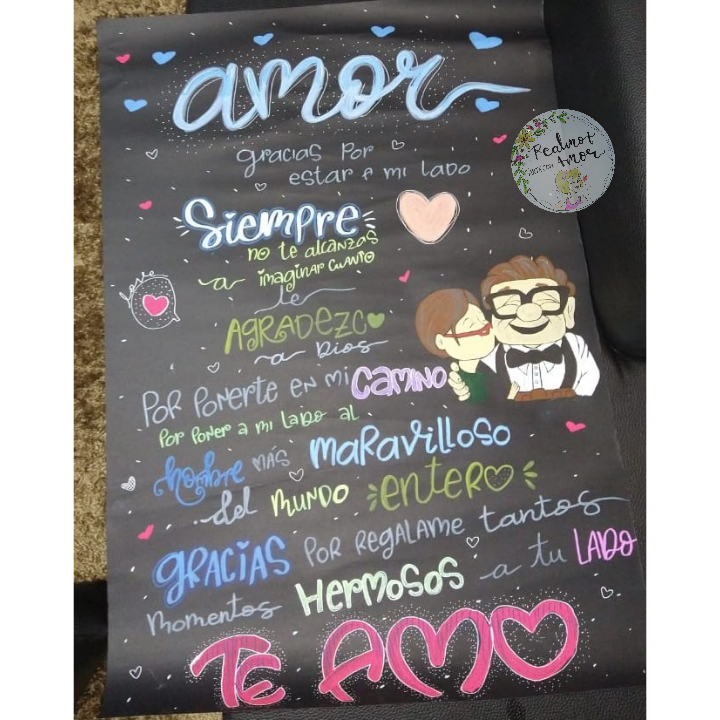 amor
gracias por
estar a mi lado
Siempre
no te alcanzas
a imaginar cuanto
le
AGRADEZCO
a Dios
POR PONERTE EN MI CAMINO
Por poner a mi lado al
hombre más maravilloso
del mundo entero
GRACIAS POR REGALAME tantos
momentos Hermosos a tu LADO
TE AMO
love
Realmot
Amor